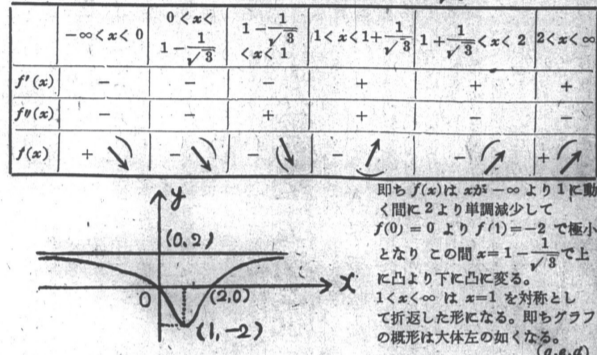 −∞<x<0 | 0<x<1−1/√3 | 1−1/√3<x<1 | 1<x<1+1/√3 | 1+1/√3<x<2 | 2<x<∞
f′(x) − − − + + +
f″(x) − − + + − −
f(x) + − − − − +
y
(0,2)
x
0
(2,0)
(1,−2)
即ち f(x)は xが −∞ より 1 に動
く間に 2 より単調減少して
f(0) = 0 より f(1)=−2 で極小
となり この間 x= 1 − 1/√3 で上
に凸より下に凸に変る。
1<x<∞ は x=1 を対称とし
て折返した形になる。即ちグラフ
の概形は大体左の如くなる。
(q.e.d)